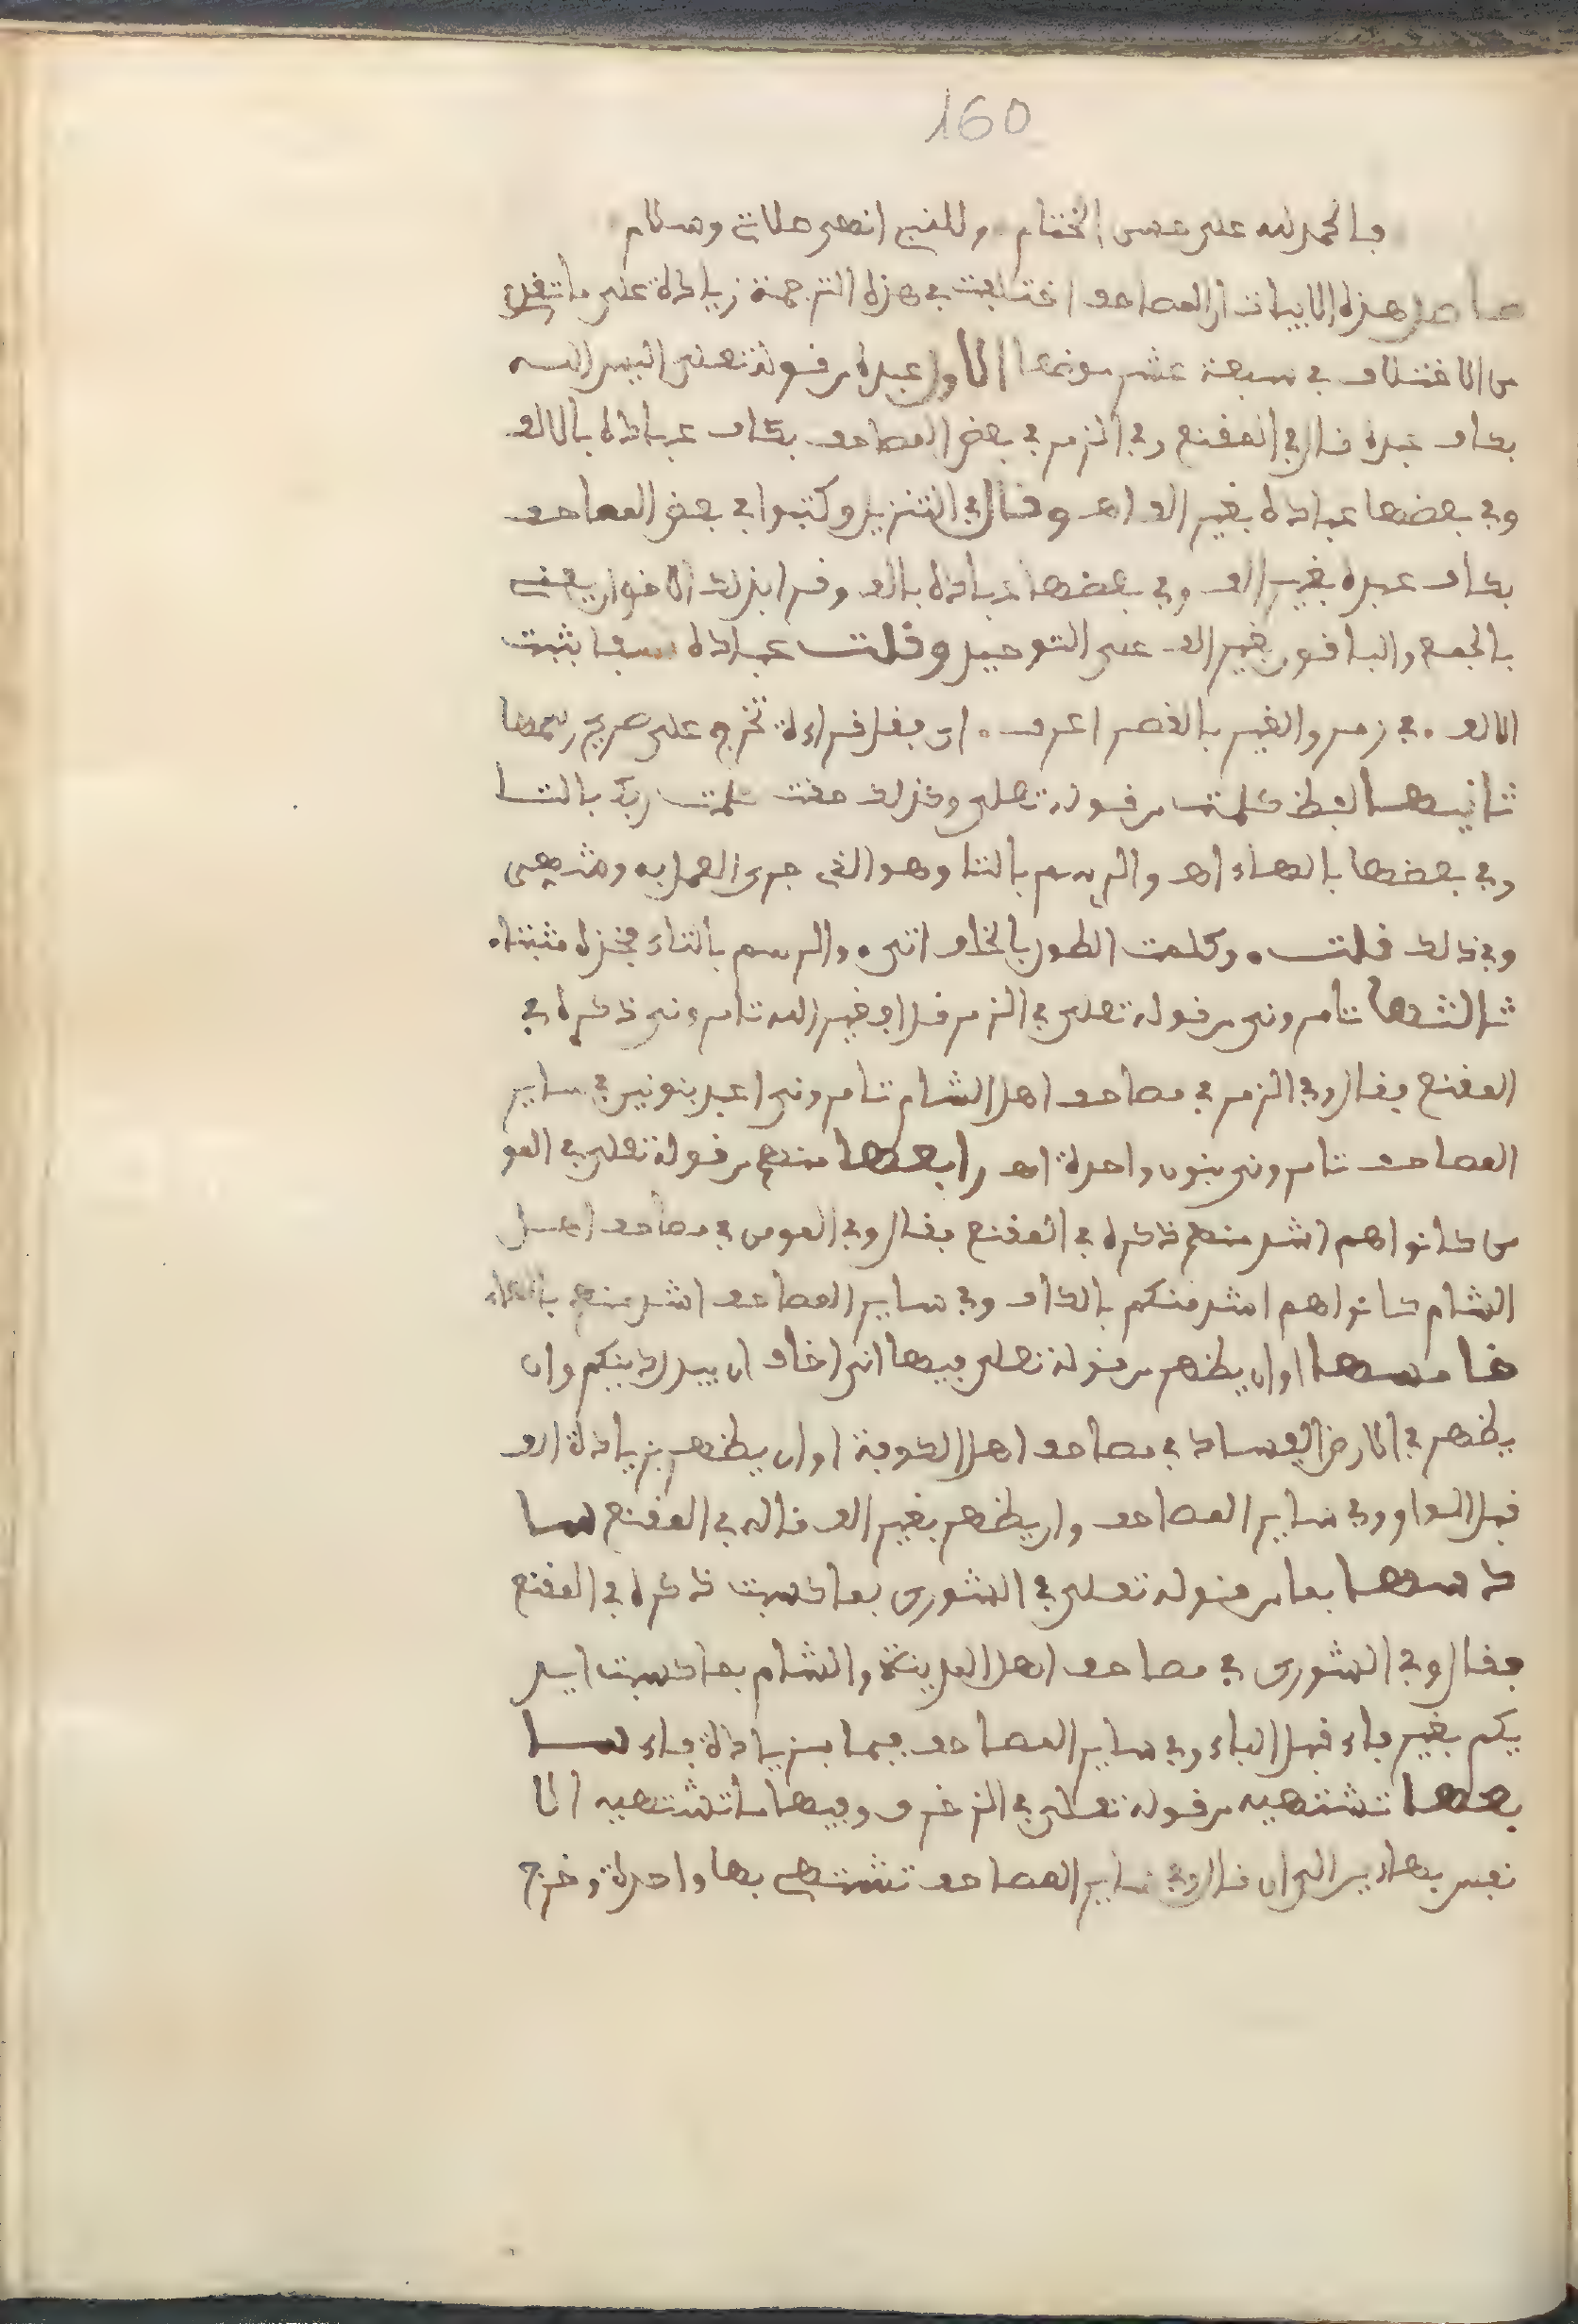 160
فالحمد لله على حسن الختام وللنبي انهى صلاة وسلام
حاصل هذه الابيات ان المصاحف اختلفت في هذه الترجمة زيادة على ما تقدم
من الاختلاف في سبعة عشر موضعا الاول عبده من قوله تعلى اليس الله
بكاف عبده قال في المقنع وفي الزمر في بعض المصاحف بكاف عباده بالالف
وفي بعضها عباده بغير الف اهـ وقال في التنزيل وكتبوا في بعض المصاحف
بكاف عبده بغير الف وفي بعضها عباده بالف وقرا بذلك الاخوان يعنى
بالجمع والباقون بغير الف على التوحيد وقلت عباده بثبت
الالف . في زمر والغير بالقصر اعرف . اى فقل قراءة تخرج على صريح رسمها
ثانيها لفظ كلمت من قوله تعلى وكذلك حقت كلمت ربك بالتا
وفي بعضها بالهاء اهـ والرسم بالتا وهو الذى جرى العمل به
وفي ذلك قلت . وكلمت الطول بالخلف اتى . والرسم بالتاء فخذه مثبتا .
ثالثها تامرونى من قوله تعلى في الزمر قل افغير الله تامرونى ذكره في
المقنع فقال وفي الزمر في مصاحف اهل الشام تامروننى اعبد بنونين في ساير
المصاحف تامرونى بنون واحدة اهـ رابعها منهم من قوله تعلى في المو
من كانوا هم اشد منهم ذكره في المقنع فقال وفي المومن في مصاحف اهل
الشام كانوا هم اشد منكم بالكاف وفي ساير المصاحف اشد منهم بالهاء
خامسها او ان يظهر من قوله تعلى فيها انى اخاف ان يبدل دينكم وان
يظهر في الارض الفساد في مصاحف اهل الكوفة او ان يظهر بزيادة الف
قبل الواو وفي ساير المصاحف وان يظهر بغير الف قاله في المقنع سا
دسها بما من قوله تعلى في الشورى بما كسبت ذكره في المقنع
فقال وفي الشورى في مصاحف اهل المدينة والشام بما كسبت ايد
يكم بغير فاء قبل الباء وفي ساير المصاحف فبما بزيادة فاء سا
بعها تشتهيه من قوله تعلى في الزخرف وفيها ما تشتهيه الا
نفس بهاءين قال وفي ساير المصاحف تشتهى بها واحدة وخرج